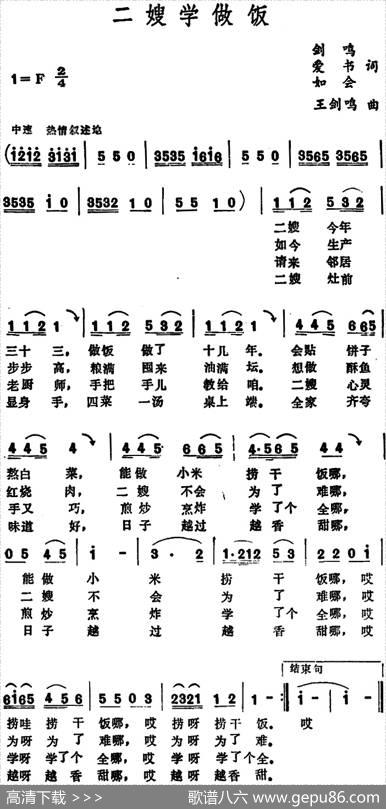 二嫂学做饭
剑鸣
爱书 词
如会
1=F 2/4
王剑鸣 曲
中速 热情叙述地
(i2i2 3i3i | 5 5 0 | 3535 i6i6 | 5 5 0 | 3565 3565 |
3535 i 0 | 3532 1 0 | 5 5 1 0) | 1 1 2 5 3 2 |
二嫂 今年
如今 生产
请来 邻居
二嫂 灶前
1 1 2 1 | 1 1 2 5 3 2 | 1 1 2 1 | 4 4 5 6 6 5 |
三十 三, 做饭 做了 十几 年。 会贴 饼子
步步 高, 粮满 囤来 油满 坛。 想做 酥鱼
老厨 师, 手把 手儿 教给 咱。 二嫂 心灵
显身 手, 四菜 一汤 桌上 端。 全家 齐夸
4 4 5 4 | 4 4 5 6 6 5 | 4·5 6 5 | 4 4 5 |
熬白 菜, 能做 小米 捞干 饭哪,
红烧 肉, 二嫂 不会 为了 难哪,
手又 巧, 煎炒 烹炸 学了个 全哪,
味道 好, 日子 越过 越香 甜哪,
0 5 4 5 | i - | 3 · 2 | 1·212 5 3 | 2 2 0 1 |
能做 小 米 捞 干 饭哪, 哎
二嫂 不 会 为 了 难哪, 哎
煎炒 烹 炸 学 了个 全哪, 哎
日子 越 过 越 香 甜哪, 哎
结束句
6i65 4 5 6 | 5 5 0 3 | 2321 6 1 2 | 1 - :‖ i - | i 0 ‖
捞哇 捞干 饭哪, 哎 捞呀 捞干 饭。 哎
为呀 为了 难哪, 哎 为呀 为了 难。
学呀 学了个 全哪, 哎 学呀 学了个 全。
越呀 越香 甜哪, 哎 越呀 越香 甜。
高清下载 >>>
歌谱八六 www.gepu86.com